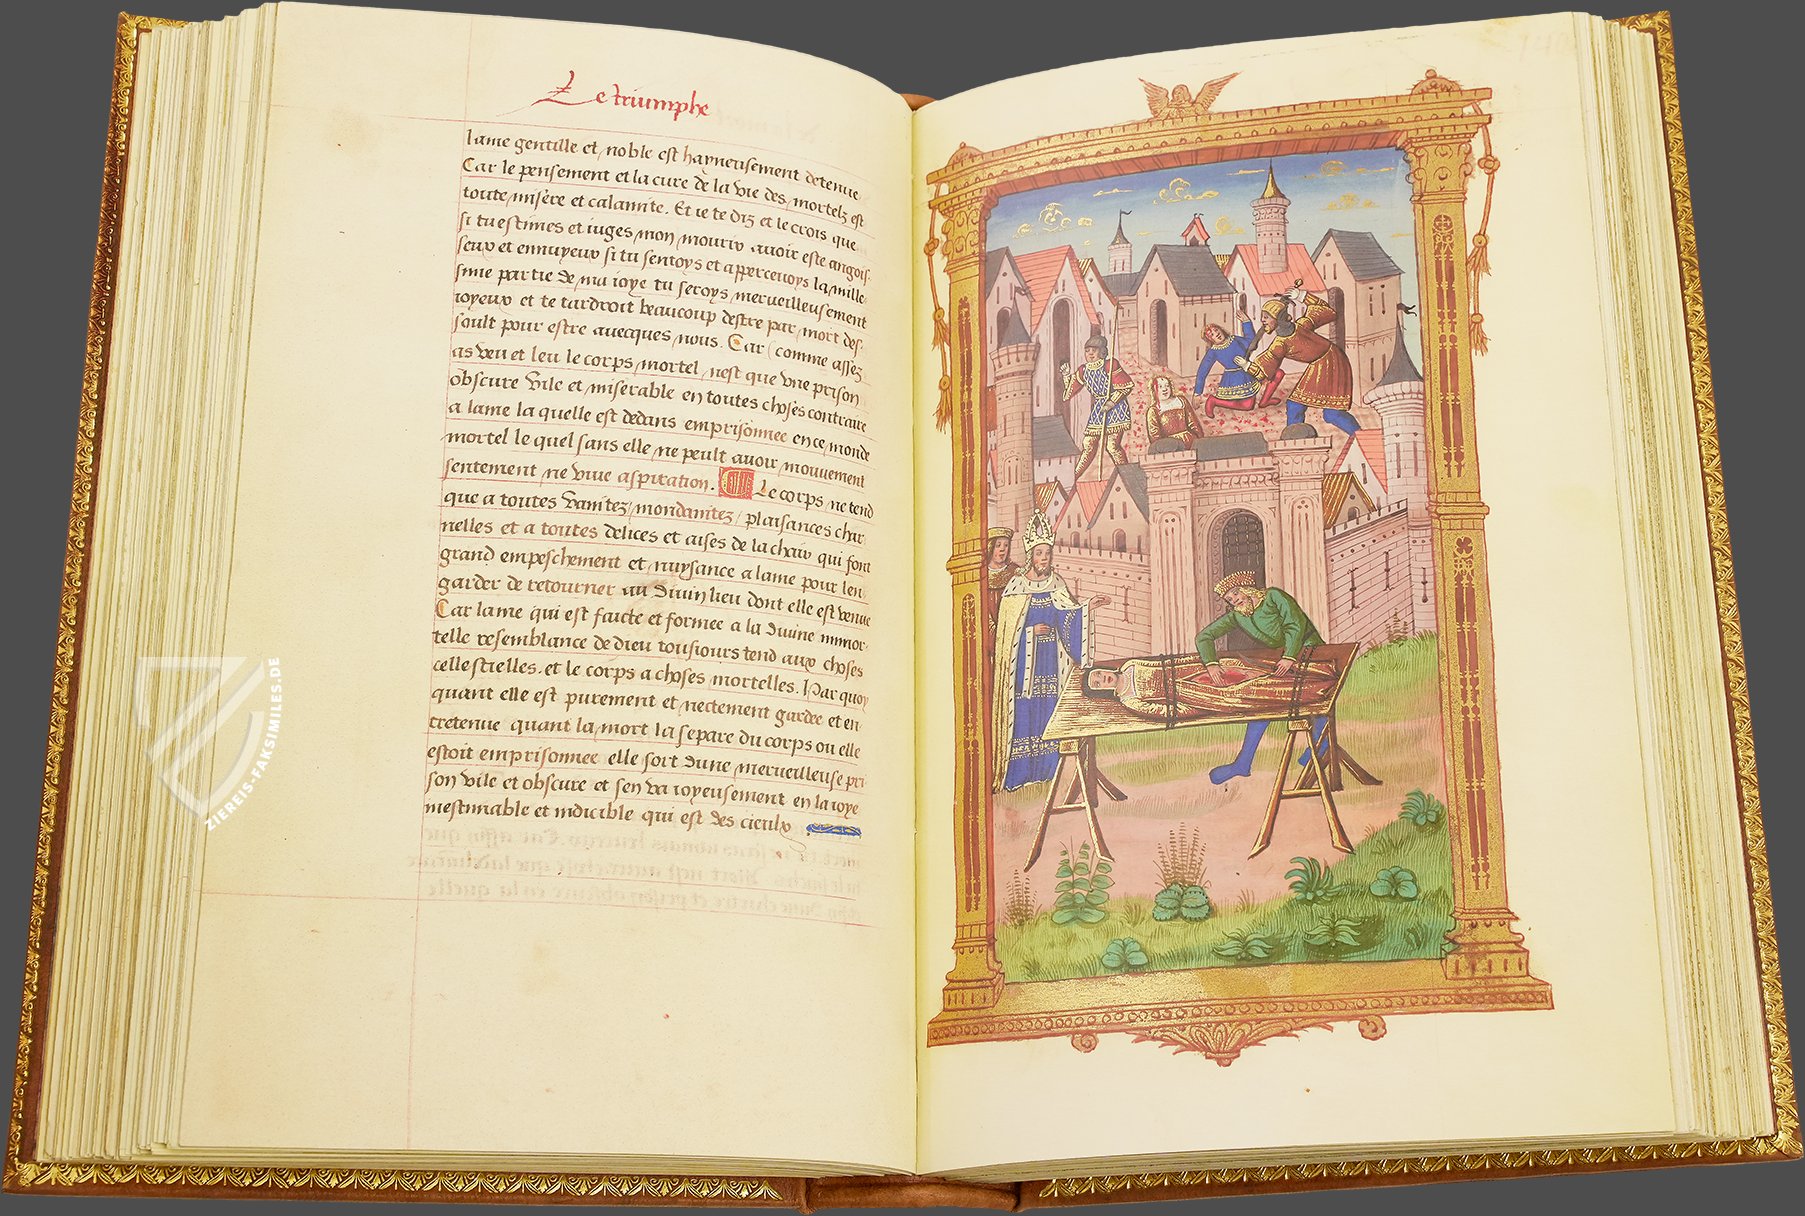 Le triumphe
lame gentille et noble est hayneusement detenue
Car le pensement et la cure de la vie des mortelz est
toute misere et calamite. Et ie te diz et le crois que
si tu estimes et iuges mon mourir auoir este angois-
seux et ennuyeux si tu sentoys et appercevoys la mille
sme partie de ma ioye tu seroys merueilleusement
ioyeux et te tardroit beaucoup destre par mort des
soult pour estre auecques nous. Car comme assez
as veu et leu le corps mortel nest que vne prison
obscure vile et miserable en toutes choses contraire
a lame la quelle est dedans emprisonnee en ce monde
mortel le quel sans elle ne peult auoir mouuement
sentement ne viue aspiration. Le corps ne tend
que a toutes vanitez mondanitez plaisances char
nelles et a toutes delices et aises de la chair qui font
grand empeschement et nuysance a lame pour len
garder de retourner au diuin lieu dont elle est venue
Car lame qui est faicte et formee a la diuine immor-
telle resemblance de dieu tousiours tend aux choses
cellestielles. et le corps a choses mortelles. Par quoy
quant elle est purement et nectement gardee et en
tretenue quant la mort la separe du corps ou elle
estoit emprisonnee elle sort dune merueilleuse pri
son vile et obscure et sen va ioyeusement en la ioye
inestimable et indicible qui est des cieulx
ZIEREIS-FAKSIMILES.DE